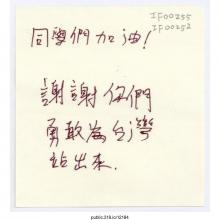 IF00255
IF00252
同學們加油!
謝謝你們
勇敢為台灣
站出來.
public.318.io/12184